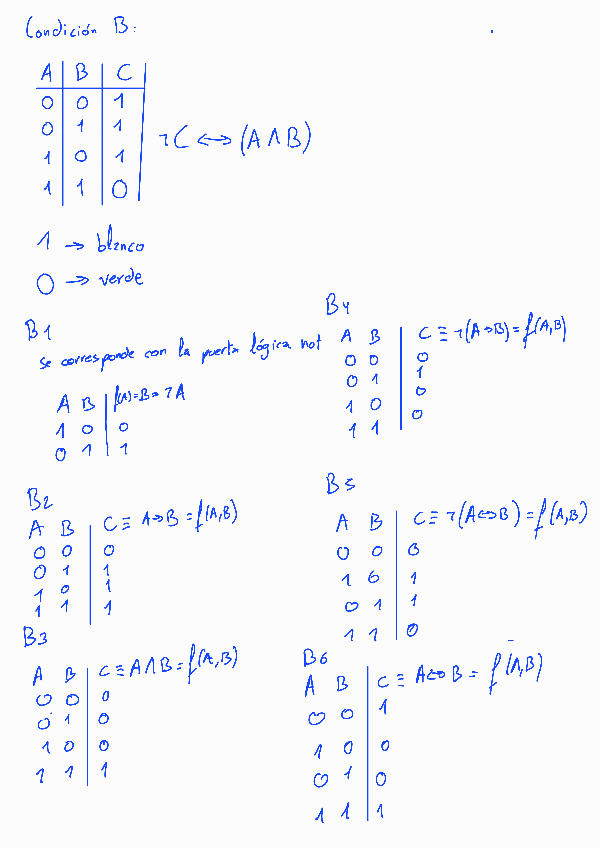 Condición B:
A B C
0 0 1
0 1 1
1 0 1
1 1 0
¬C ↔ (A ∧ B)
1 → blanco
0 → verde
B1
se corresponde con la puerta lógica not
A B f(A)=B=¬A
1 0 0
0 1 1
B2
A B C ≡ A→B = f(A,B)
0 0 0
0 1 1
1 0 1
1 1 1
B3
A B C ≡ A∧B = f(A,B)
0 0 0
0 1 0
1 0 0
1 1 1
B4
A B C ≡ ¬(A→B) = f(A,B)
0 0 0
0 1 1
1 0 0
1 1 0
B5
A B C ≡ ¬(A↔B) = f(A,B)
0 0 0
1 0 1
0 1 1
1 1 0
B6
A B C ≡ A↔B = f(A,B)
0 0 1
1 0 0
0 1 0
1 1 1